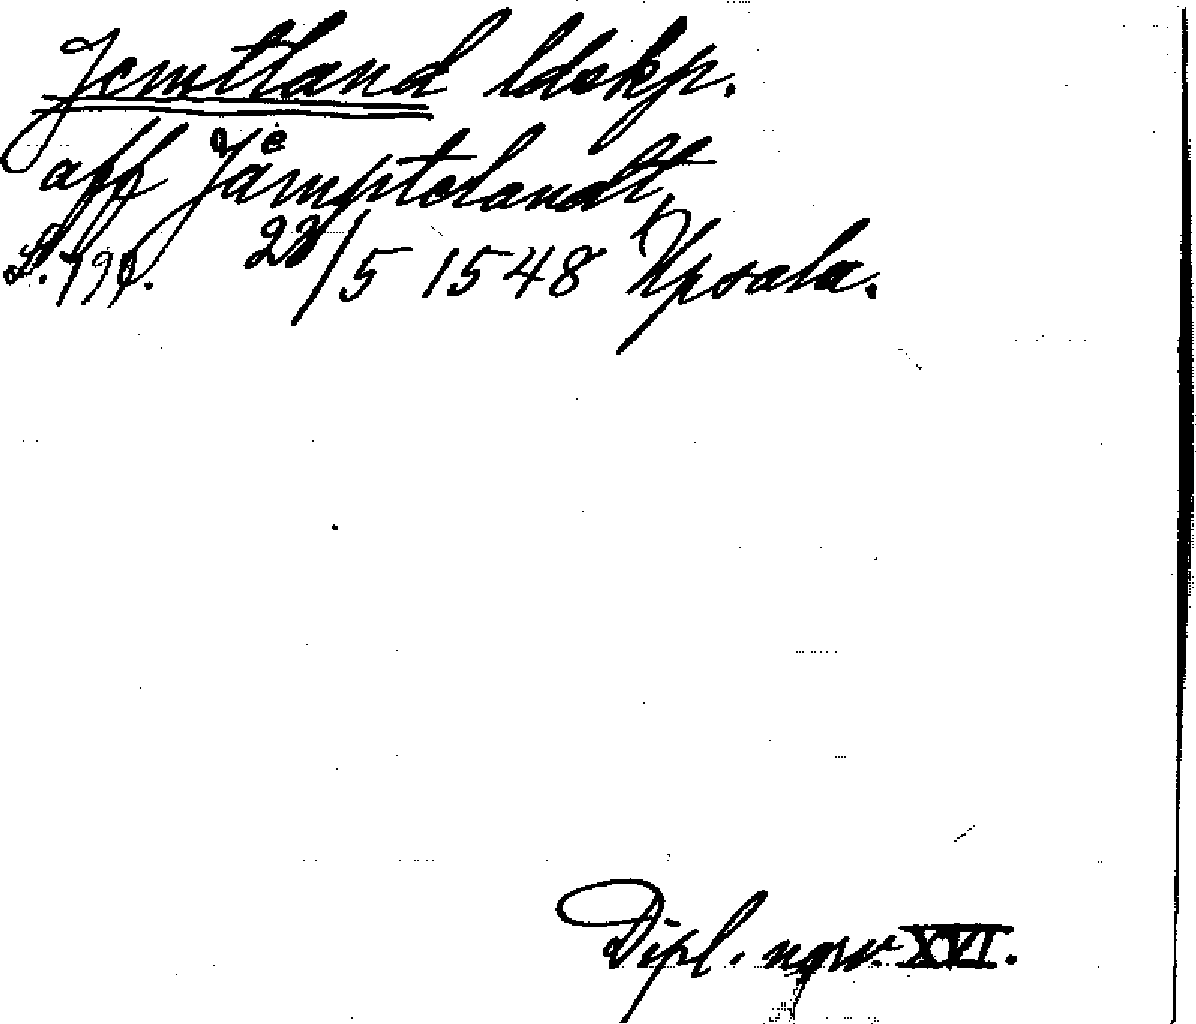 Jemtland ldskp.
aff Jåmptelandt,
S. 790. 22/5 1548 Upsala.
Dipl. norv. XVI.